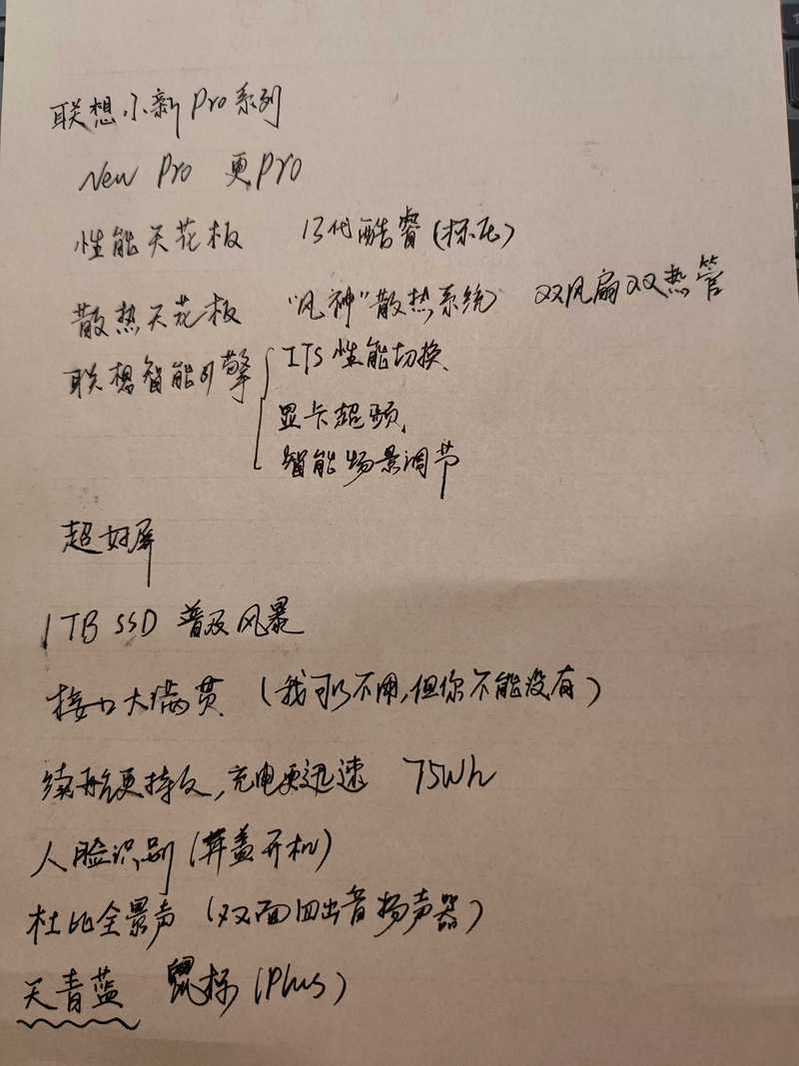 联想小新Pro系列
New Pro 更Pro
性能天花板 13代酷睿(标压)
散热天花板 "风神"散热系统 双风扇双热管
联想智能引擎 ITS 性能切换
显卡超频
智能场景调节
超好屏
1TB SSD 普及风暴
接口大满贯 (我可以不用,但你不能没有)
续航更持久,充电更迅速 75Wh
人脸识别 (掀盖开机)
杜比全景声 (双面四出音扬声器)
天青蓝 鼠标(Plus)